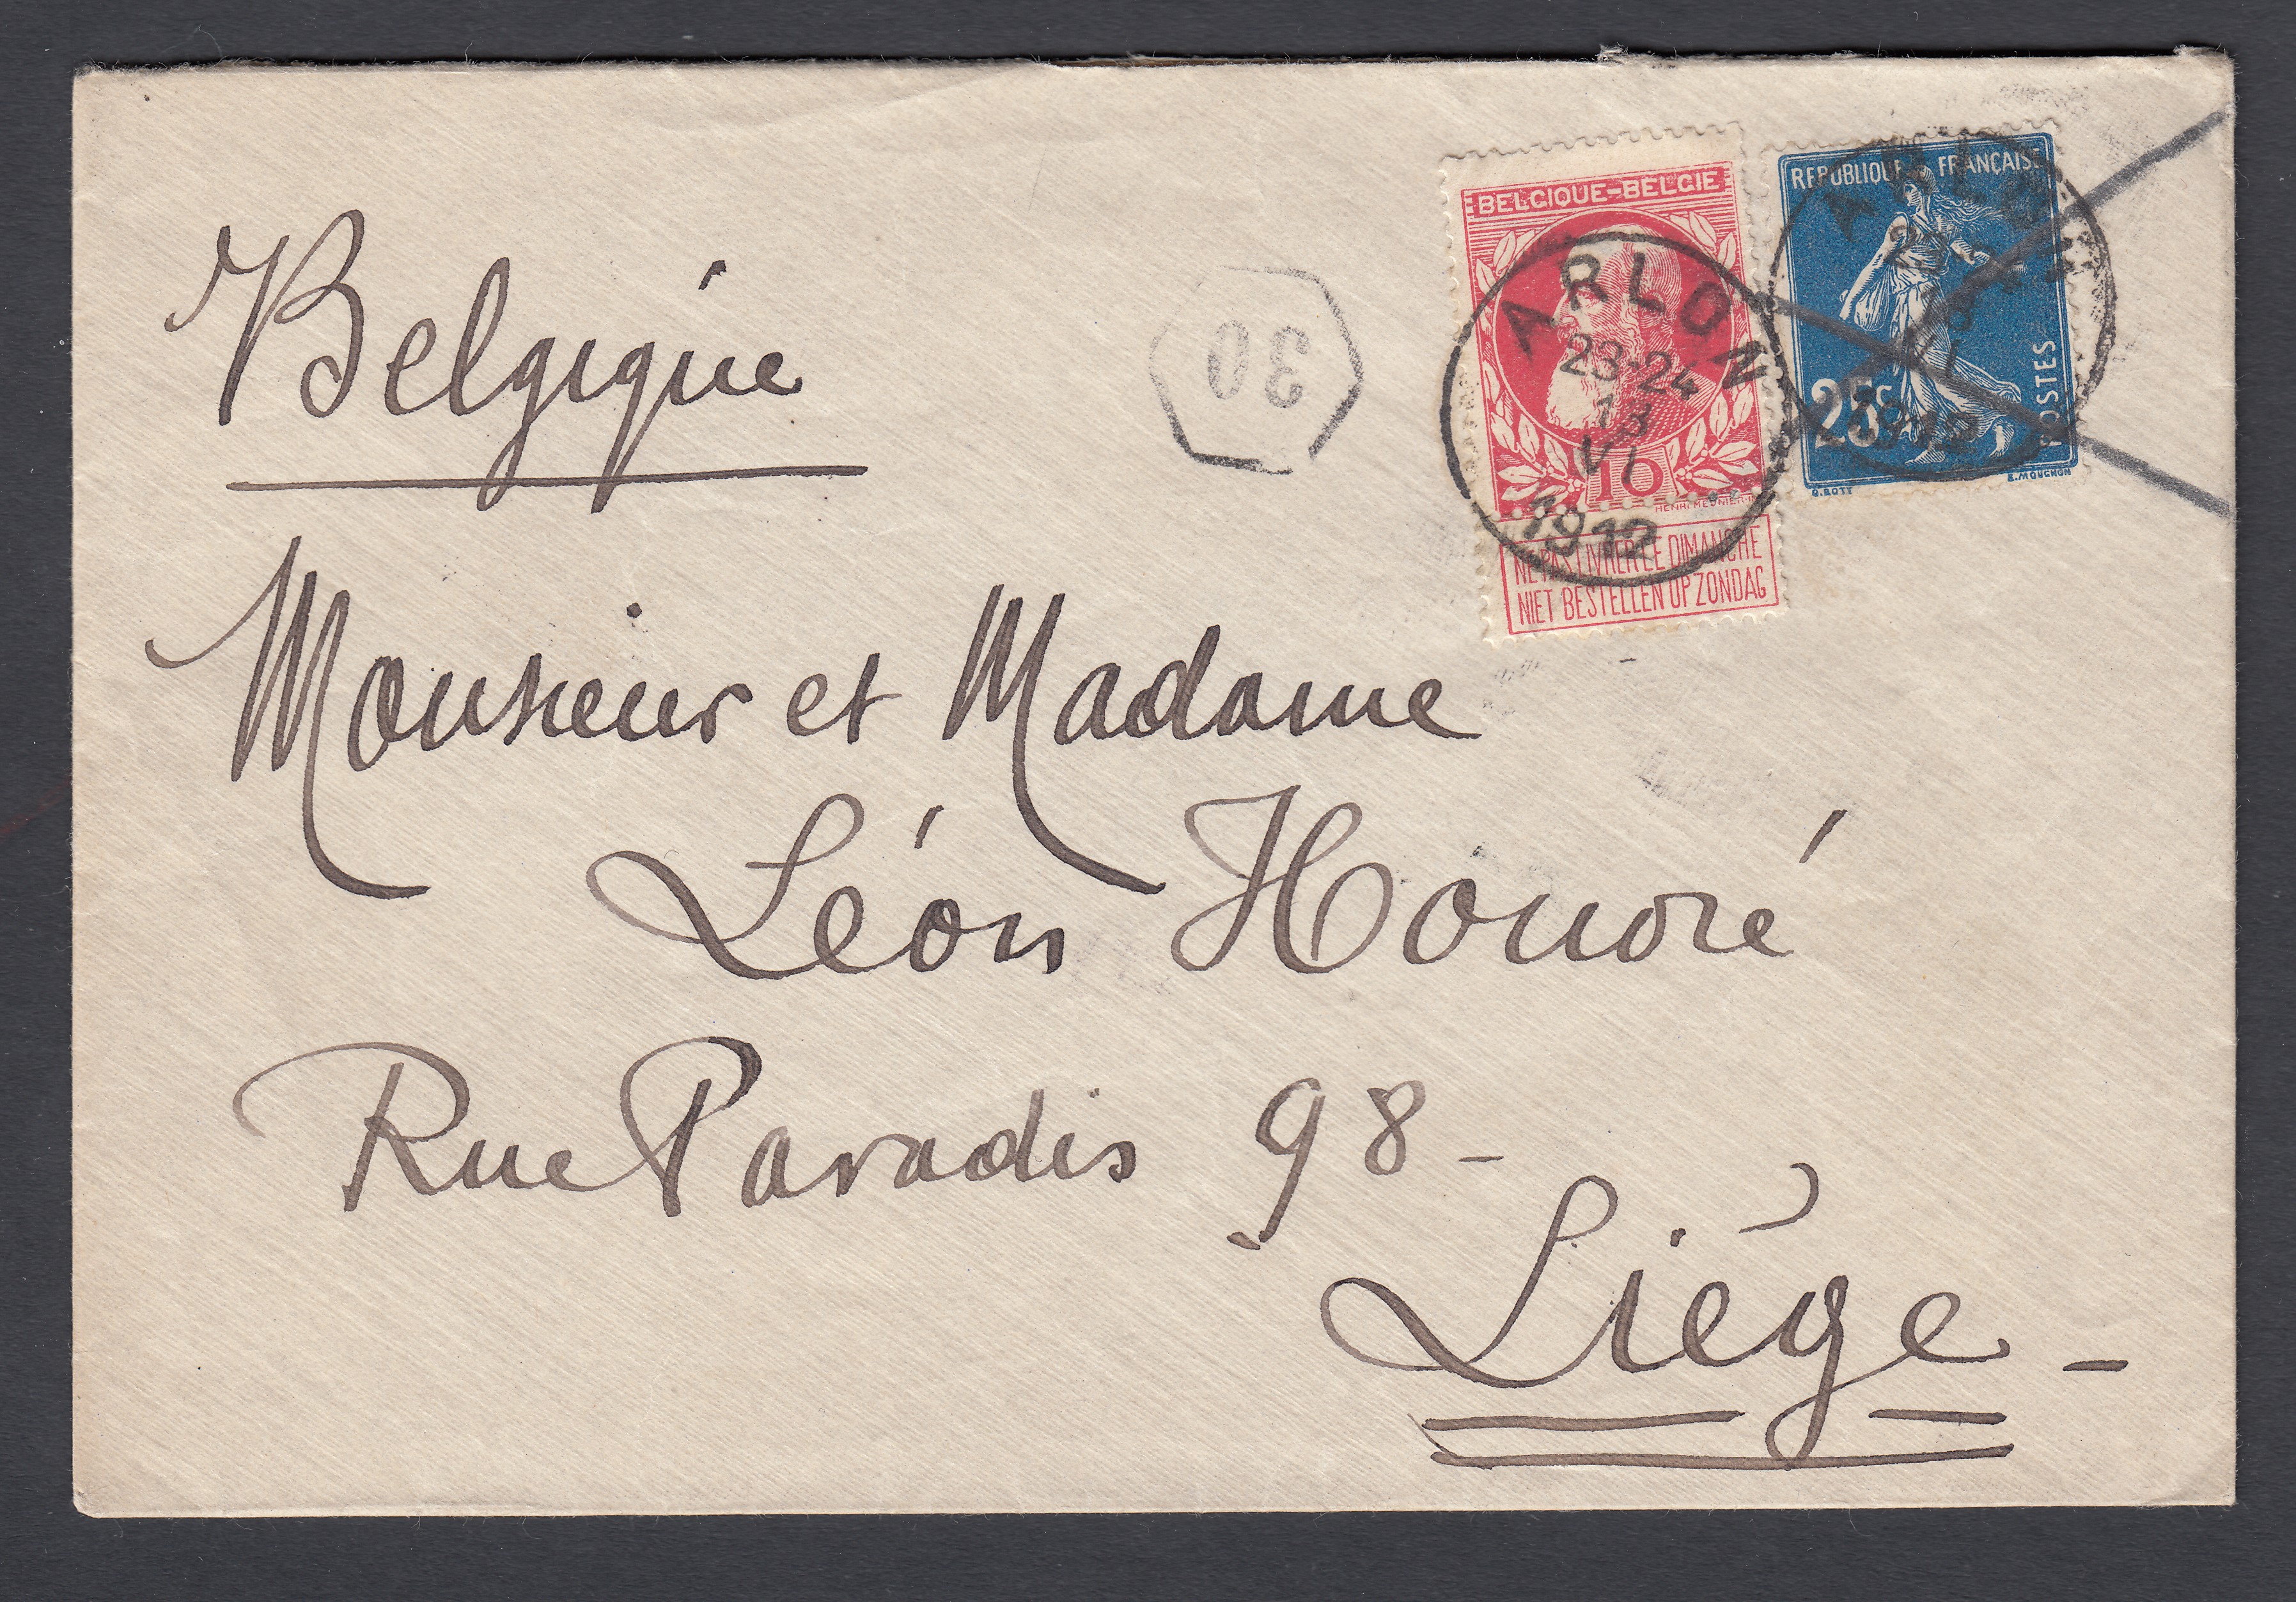 Belgique
30
BELGIQUE-BELGIE
10
HENRI MEUNIER
NE PAS LIVRER LE DIMANCHE
NIET BESTELLEN OP ZONDAG
ARLON
23-24
13
VI
1912
REPUBLIQUE FRANÇAISE
25c
POSTES
O.ROTY
E.MOUCHON
ARLON
1912
Monsieur et Madame
Léon Honoré
Rue Paradis 98-
Liége-